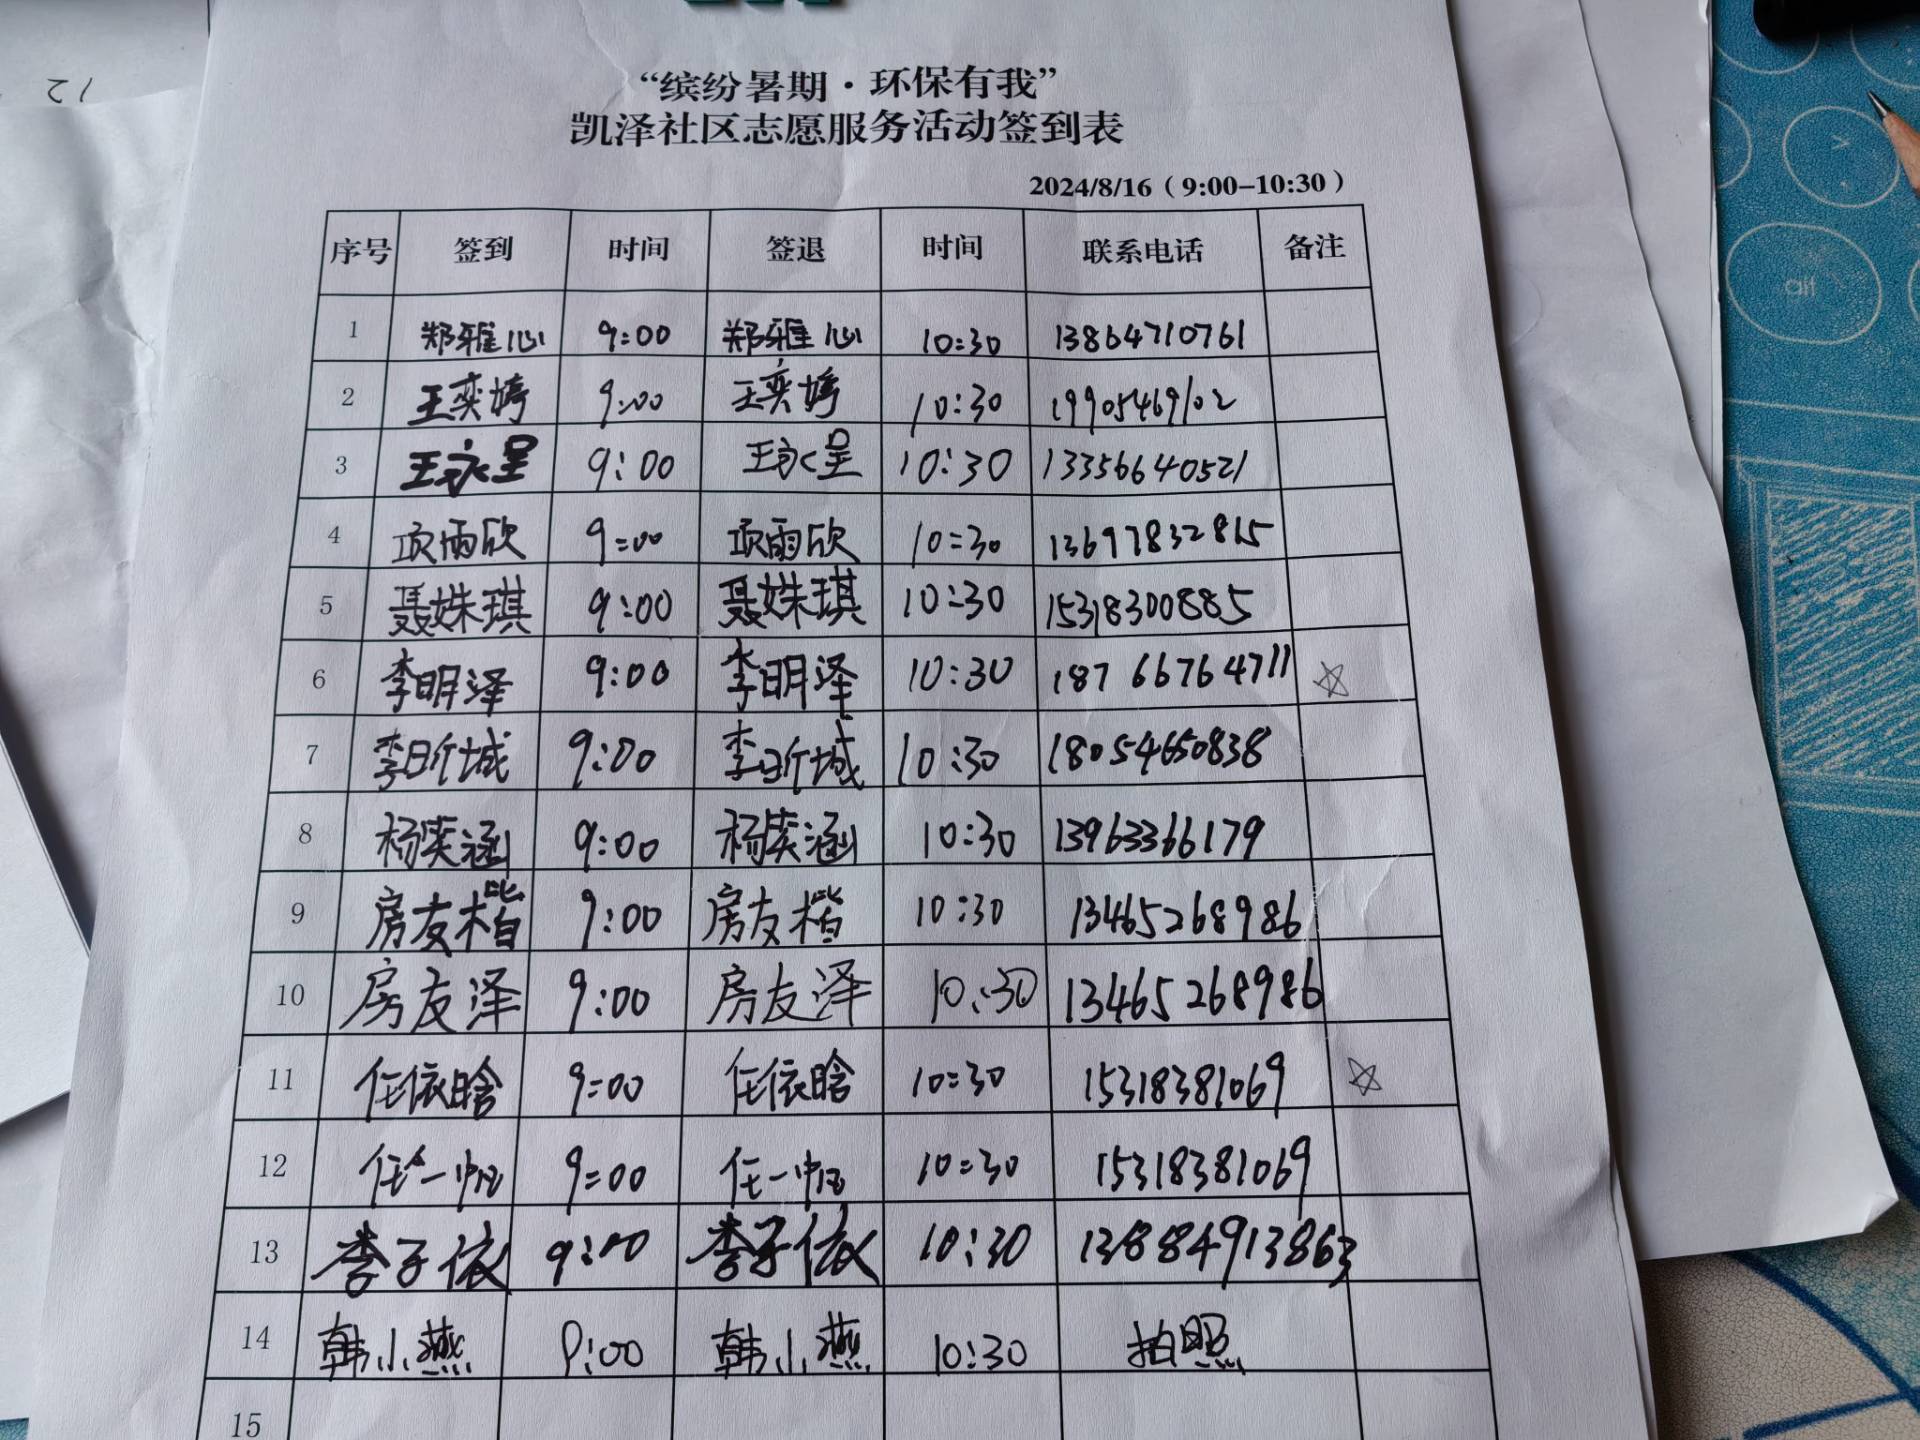 “缤纷暑期·环保有我”
凯泽社区志愿服务活动签到表
2024/8/16（9:00-10:30）
序号 签到 时间 签退 时间 联系电话 备注
1 郑雅心 9:00 郑雅心 10:30 13864710761
2 王奕婷 9:00 王奕婷 10:30 19905469102
3 王永呈 9:00 王永呈 10:30 13356640521
4 项雨欣 9:00 项雨欣 10:30 13697832815
5 聂姝琪 9:00 聂姝琪 10:30 15318300885
6 李明泽 9:00 李明泽 10:30 18766764711 ☆
7 李昕城 9:00 李昕城 10:30 18054650838
8 杨奕涵 9:00 杨奕涵 10:30 13963366179
9 房友楷 9:00 房友楷 10:30 13465268986
10 房友泽 9:00 房友泽 10:30 13465268986
11 任依晗 9:00 任依晗 10:30 15318381069 ☆
12 任一帆 9:00 任一帆 10:30 15318381069
13 李子依 9:00 李子依 10:30 13884913863
14 韩小燕 9:00 韩小燕 10:30 拍照
15
alt